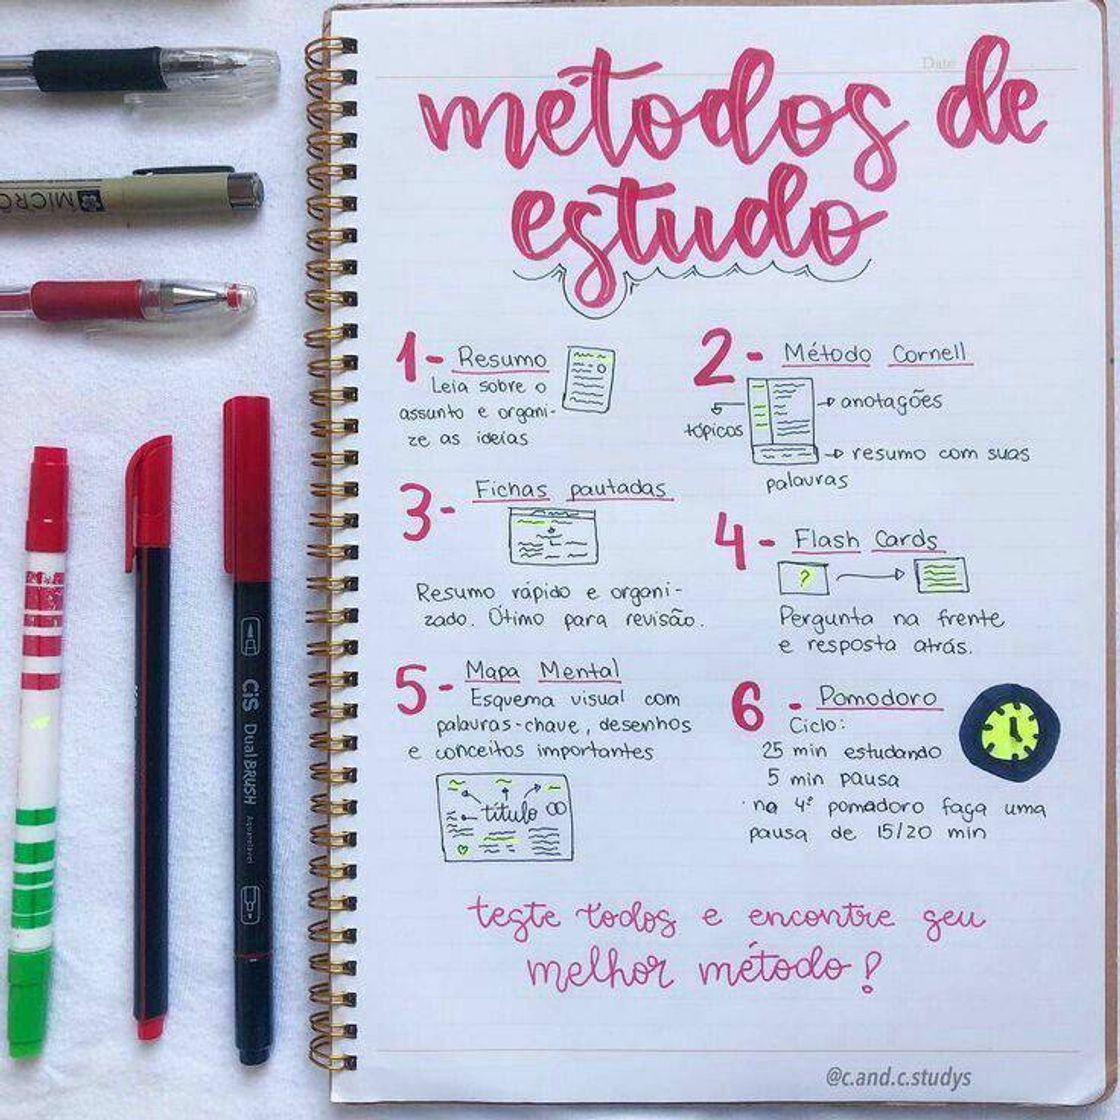 Date
métodos de
estudo
1- Resumo
Leia sobre o
assunto e organi-
ze as ideias
2- Método Cornell
anotações
tópicos
resumo com suas
palavras
3- Fichas pautadas
Resumo rápido e organi-
zado. Ótimo para revisão.
4- Flash Cards
?
Pergunta na frente
e resposta atrás.
5- Mapa Mental
Esquema visual com
palavras-chave, desenhos
e conceitos importantes
título
6- Pomodoro
Ciclo:
25 min estudando
5 min pausa
no 4º pomadoro faça uma
pausa de 15/20 min
teste todos e encontre seu
melhor método!
@c.and.c.studys
MICRO
CiS Dual BRUSH Aquarelável